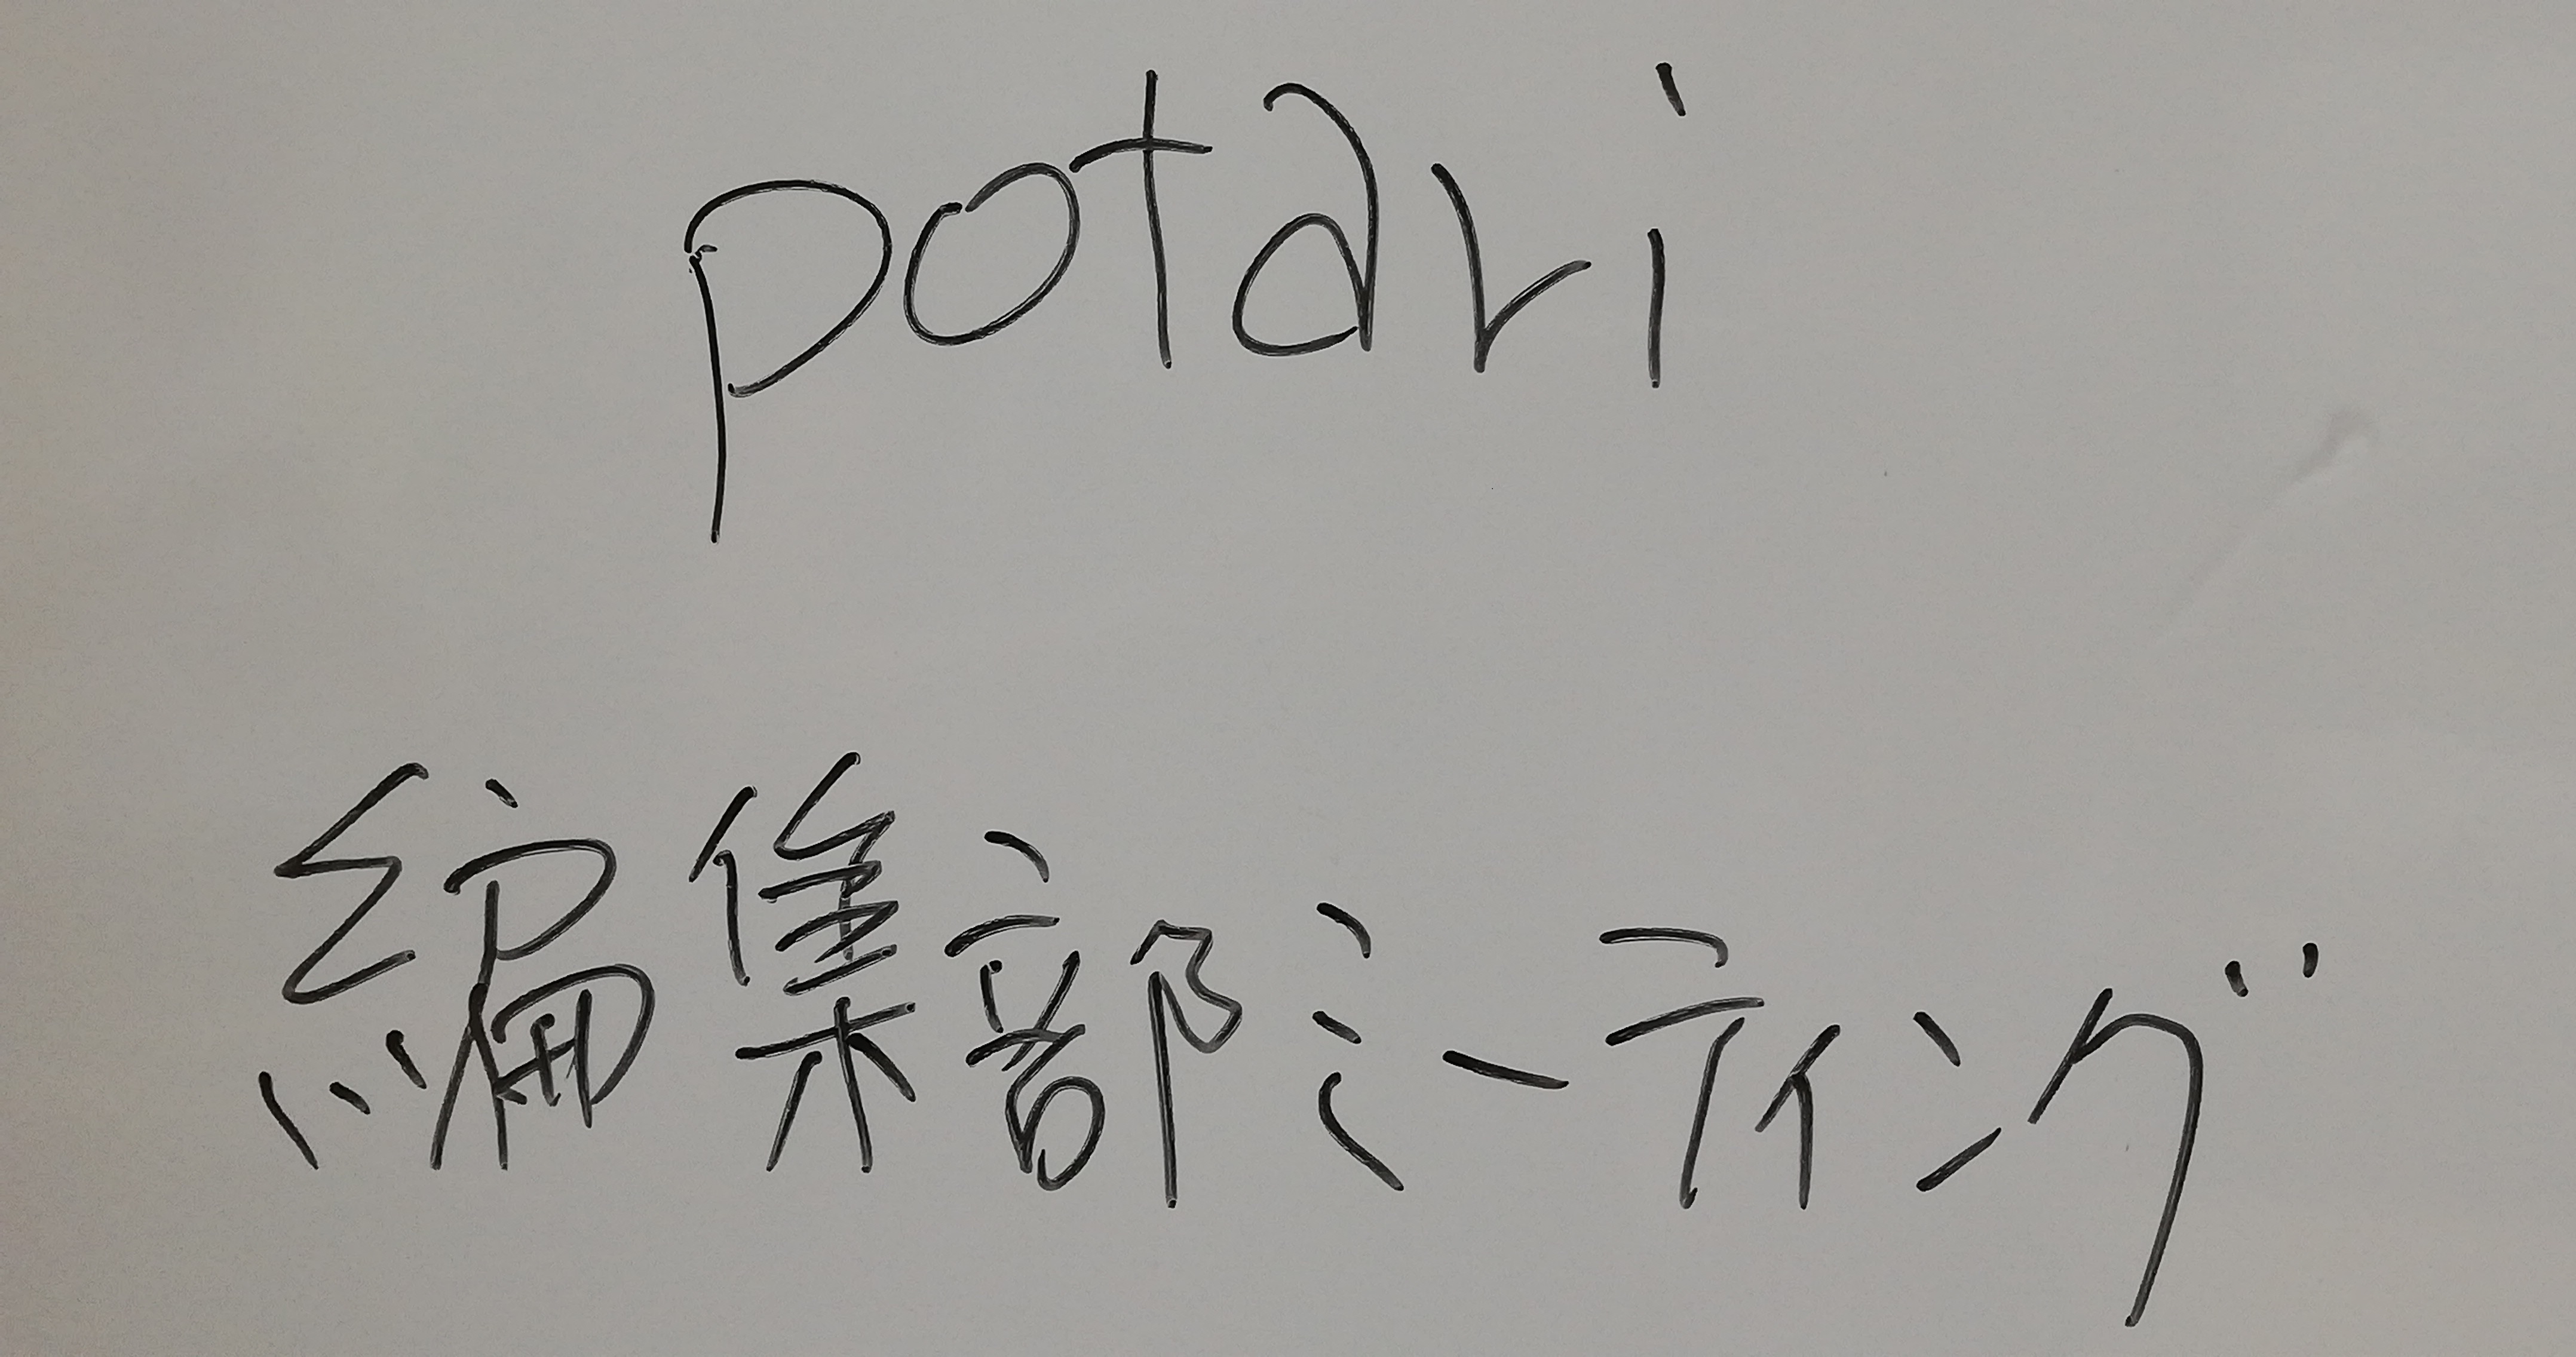 potari
編集部ミーティング